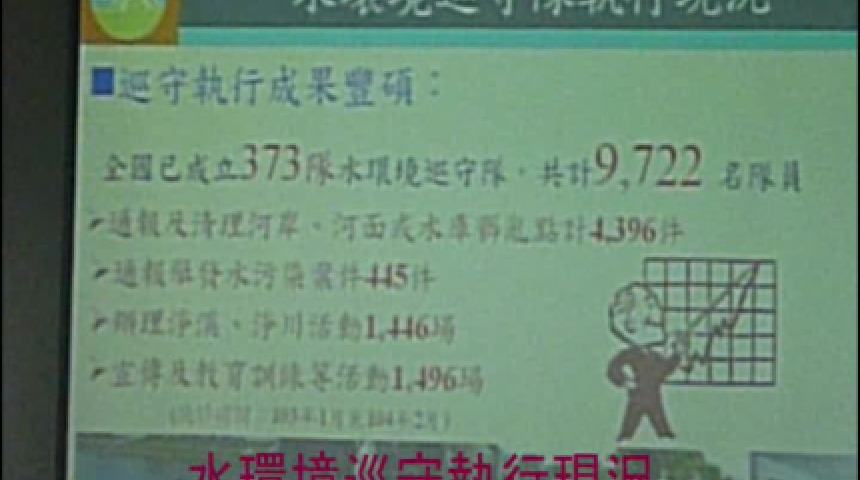 水環境巡守隊執行現況
巡守執行成果豐碩：
全國已成立373隊水環境巡守隊，共計9,722名隊員
通報及清理河岸、河面或水庫髒亂點計4,396件
通報舉發水污染案件445件
辦理淨溪、淨川活動1,446場
宣傳及教育訓練等活動1,496場
(統計時間：103年1月至104年2月)
水環境巡守執行現況